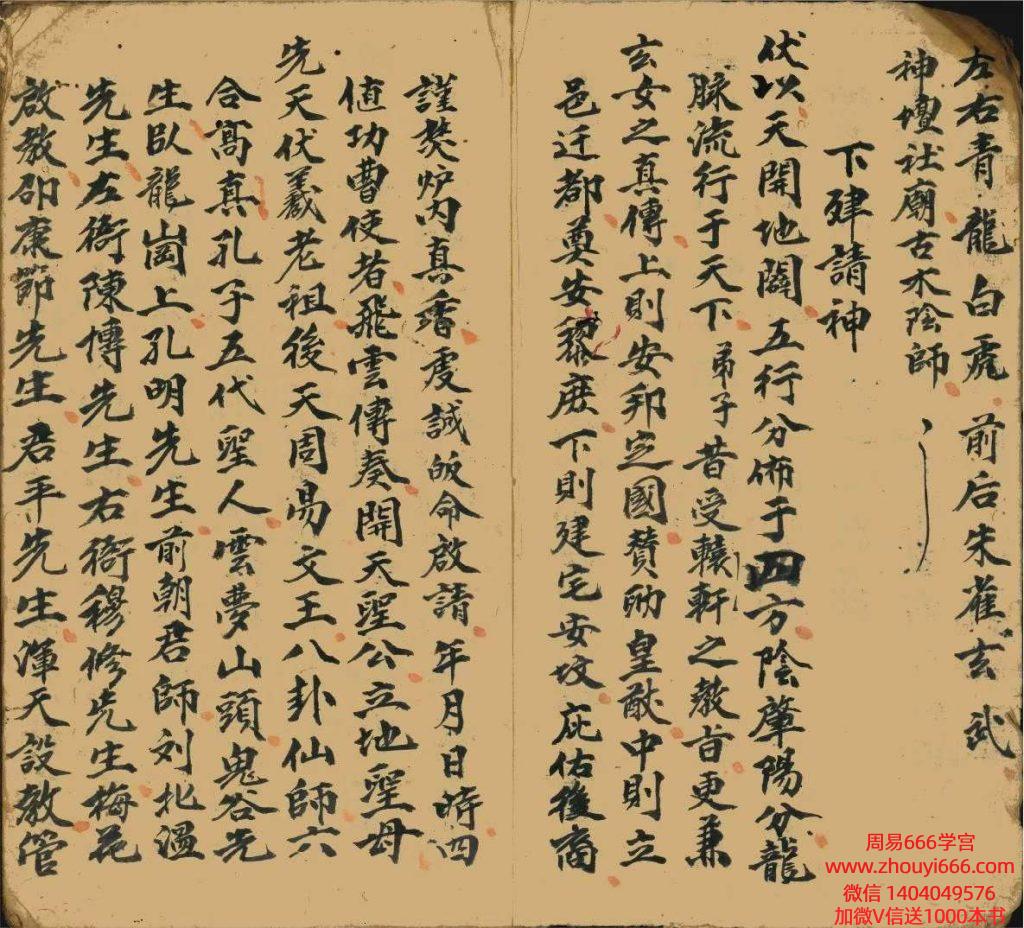 左右青龍白虎前后朱雀玄武
神壇社廟古木陰師
下肂請神
伏以天開地闢五行分佈于四方陰肇陽分龍
脉流行于天下弟子昔受轅軒之教旨更兼
玄女之真傳上則安邦定國賛助皇猷中則立
邑迁都奠安黎庶下則建宅安坟庇佑後裔
謹焚炉内真香虔誠皈命啟請年月日時四
值功曹使者飛雲傳奏開天聖公立地聖母
先天伏羲老祖後天周易文王八卦仙師六
合高真孔子五代聖人雲夢山頭鬼谷先
生臥龍崗上孔明先生前朝君師刘北溫
先生左衙陳博先生右衙穆修先生梅花
啟教邵康節先生君平先生渾天設教管
周易666学宫
www.zhouyi666.com
微信 1404049576
加微V信送1000本书